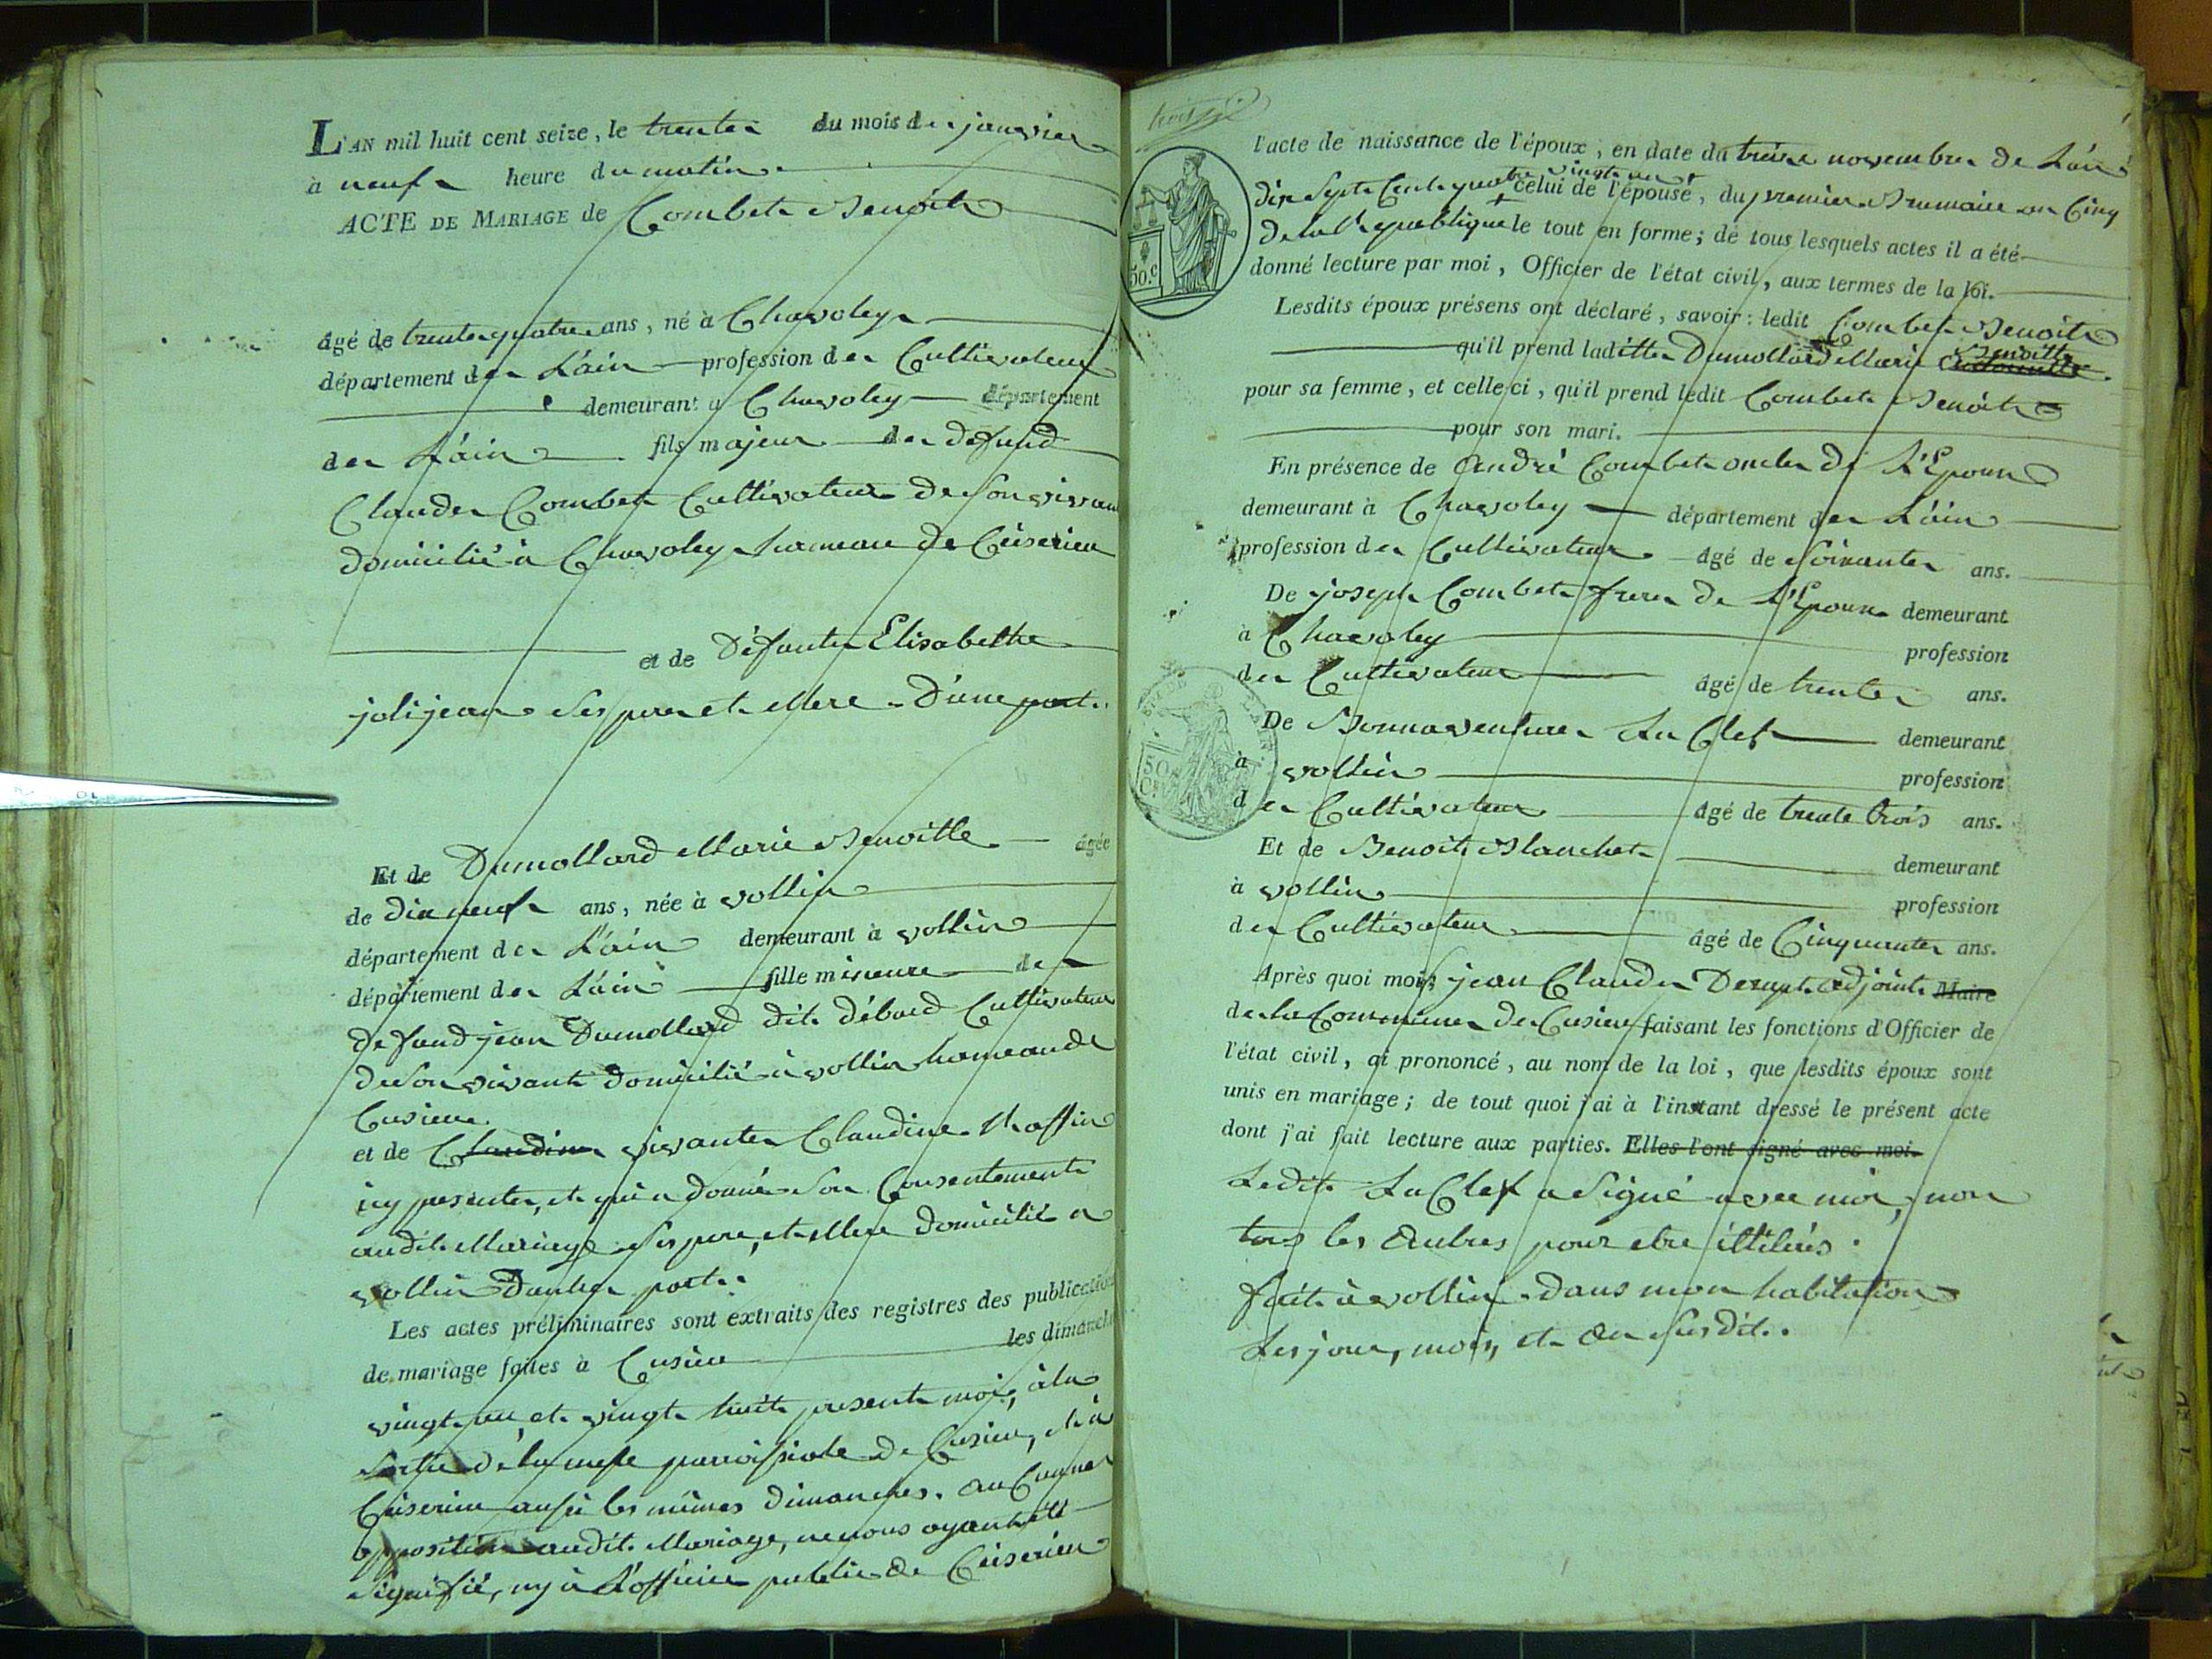 L'AN mil huit cent seize, le trente du mois de janvier
à neuf heure du matin
ACTE DE MARIAGE de Combet Benoit
âgé de trente quatre ans, né à Chavoley
département de L'ain profession de Cultivateur
demeurant a Chavoley département
de L'ain fils majeur de defund
Claude Combet Cultivateur de son vivant
domicilié à Chavoley hameau de Ceiserieu
et de Défunte Elisabethe
jolijean ses pere et Mere D'une part.
Et de Dumollard Marie Benoitte âgée
de dix neuf ans, née à vollin
département de L'ain demeurant à vollin
département de L'ain fille mineure de
defund jean Dumollard dit débord Cultivateur
de son vivant domicilié à vollin hameau de
Cusieu
et de Claudine vivante Claudine
icy presente, et qui a donné son Consentement
audit Mariage ses pere, et Mere domicilié a
vollin D'autre part.
Les actes préliminaires sont extraits des registres des publications
de mariage faites à Cusieu les dimanches
vingt un, et vingt huit present mois, à la
sortie de la messe parroissiale de Cusieu, et à
Ceiserieu aussi les mêmes dimanches. Aucune
opposition audit Mariage, ne nous ayant été
signifié, ny à L'officier public de Ceiserieu
l'acte de naissance de l'époux, en date du treize novembre de L'an
dix Sept Cent quatre vingt un celui de l'épouse, du premier Brumaire an Cinq
de la Republique le tout en forme; de tous lesquels actes il a été
donné lecture par moi, Officier de l'état civil, aux termes de la loi.
Lesdits époux présens ont déclaré, savoir: ledit Combet Benoit
qu'il prend laditte Dumollard Marie Benoitte
pour sa femme, et celle-ci, qu'il prend ledit Combet Benoit
pour son mari.
En présence de André Combet oncle de L'Epoux
demeurant à Chavoley département de L'ain
profession de Cultivateur âgé de soixante ans.
De joseph Combet frere de L'Epoux demeurant
à Chavoley profession
de Cultivateur âgé de trente ans.
De Bonnaventure La Clef demeurant
à vollin profession
de Cultivateur âgé de trente trois ans.
Et de Benoit Blanchet demeurant
à vollin profession
de Cultivateur âgé de Cinquante ans.
Après quoi moi, jean Claude adjoint Maire
de la Commune de Cusieu faisant les fonctions d'Officier de
l'état civil, ai prononcé, au nom de la loi, que lesdits époux sont
unis en mariage; de tout quoi j'ai à l'instant dressé le présent acte
dont j'ai fait lecture aux parties. Elles l'ont signé avec moi.
Ledit La Clef a signé avec moi, non
tous les autres pour etre illiterés.
fait à vollin dans mon habitation
les jour, mois, et an susdit.
50.c